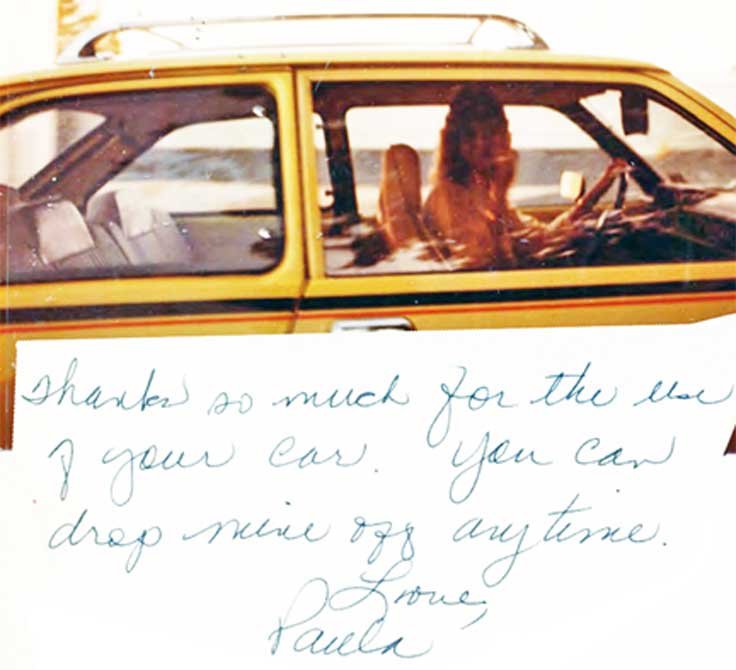 Thanks so much for the use
of your car. You can
drop mine off anytime.
Love,
Paula